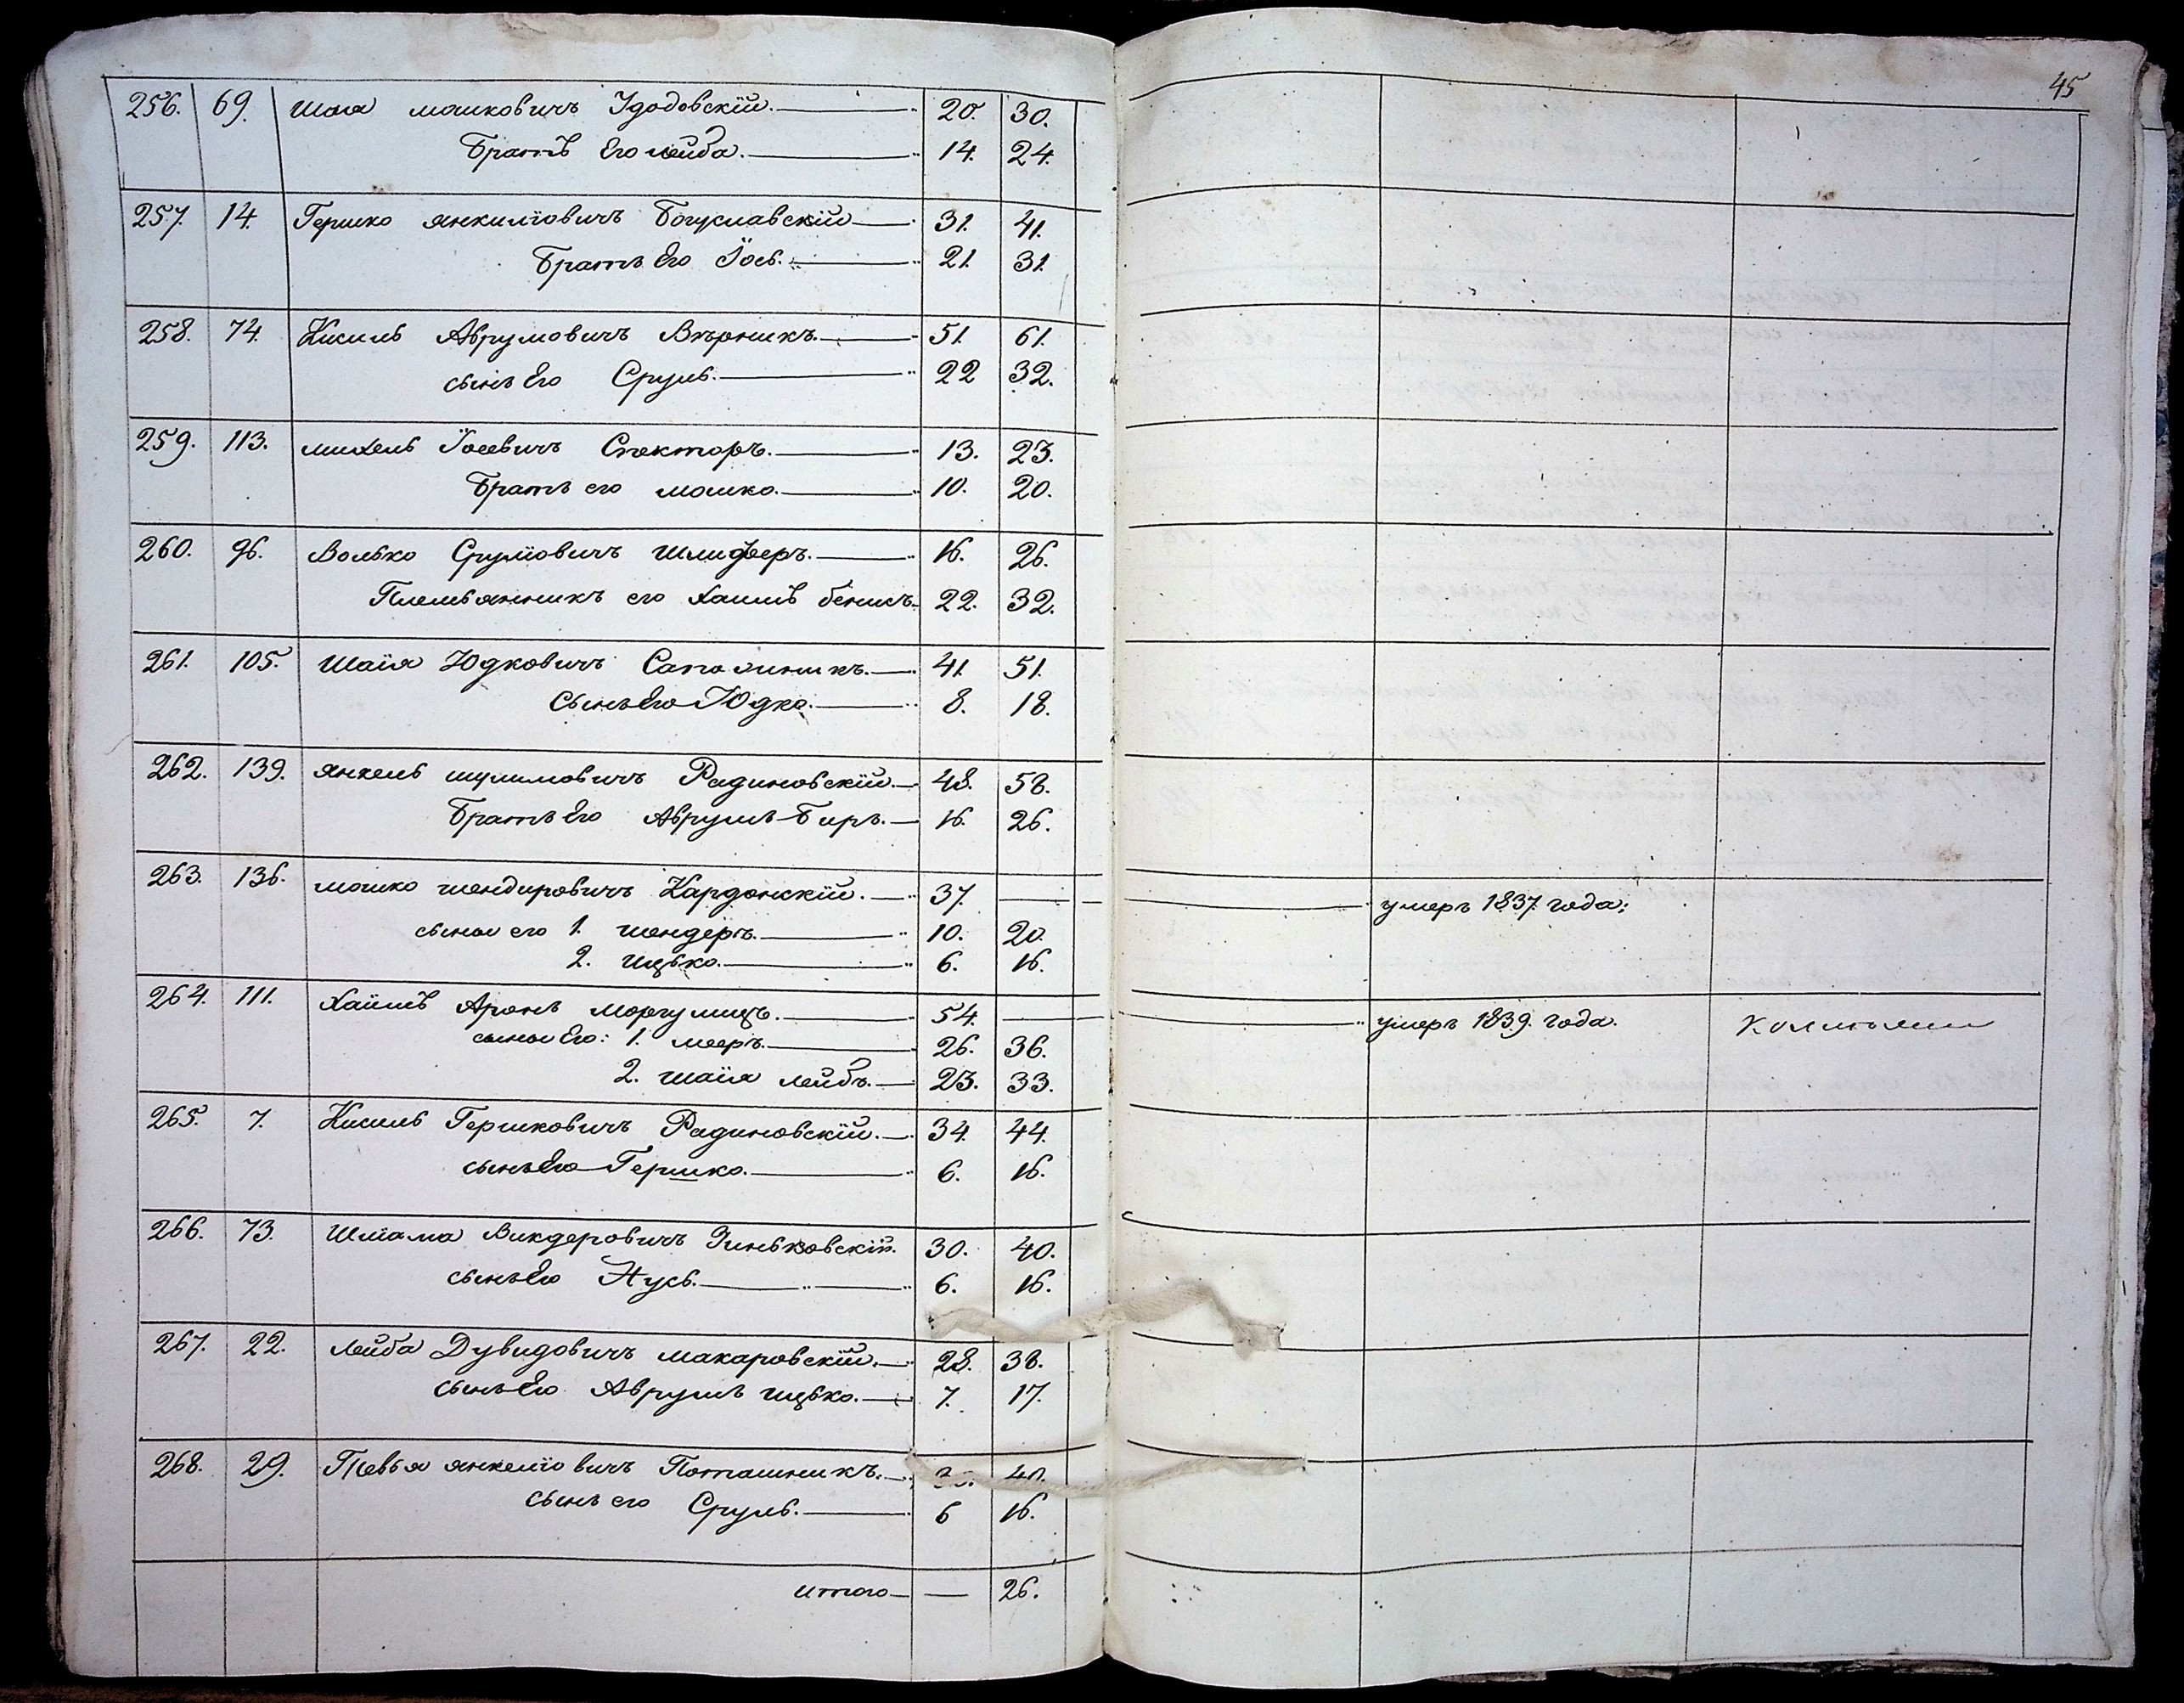 45
256. 69. Шая Мошковичъ Удодовскій. 20. 30.
Братъ Его Лейба. 14. 24.
257. 14. Гершко Янкиліовичъ Богуславскій 31. 41.
Братъ Его Іось. 21. 31.
258. 74. Кисиль Аврумовичъ Вѣрникъ. 51. 61.
сынъ Его Сруль. 22 32.
259. 113. Михель Іосевичъ Спекторъ. 13. 23.
Братъ его Мошко. 10. 20.
260. 96. Волько Сруліовичъ Шлиферъ. 16. 26.
Племьянникъ его Хаимъ Бенисъ. 22. 32.
261. 105. Шаія Юдковичъ 41. 51.
Сынъ Его Юдко. 8. 18.
262. 139. Янкель Шулимовичъ Радиновскій. 48. 58.
Братъ Его Аврумъ-Беръ. 16. 26.
263. 136. Мошко Шендировичъ Кардонскій. 37. умеръ 1837 года:
сыны его 1. Шендеръ. 10. 20.
2. Ицько. 6. 16.
264. 111. Хаимъ Аронъ Моргулицъ. 54. умеръ 1839. года.
сыны Его: 1. Мееръ. 26. 36.
2. Шаія Лейбъ. 23. 33.
265. 7. Кисиль Гершковичъ Радиновскій. 34. 44.
сынъ Его Гершко. 6. 16.
266. 73. Шліома Викдеровичъ Зиньковскій. 30. 40.
сынъ Его Нусь. 6. 16.
267. 22. Лейба Дувидовичъ Макаровскій. 28. 38.
сынъ Его Аврумъ Ицько. 7. 17.
268. 29. Тевья Янкеліовичъ Поташникъ. 40.
сынъ его Сруль. 6 16.
итого — 26.